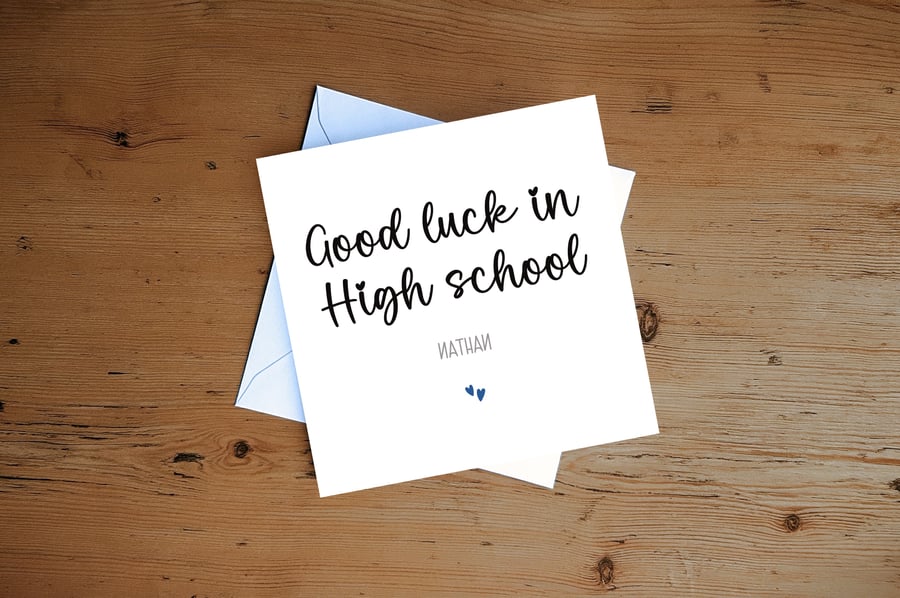 Good luck in
High school
NATHAN